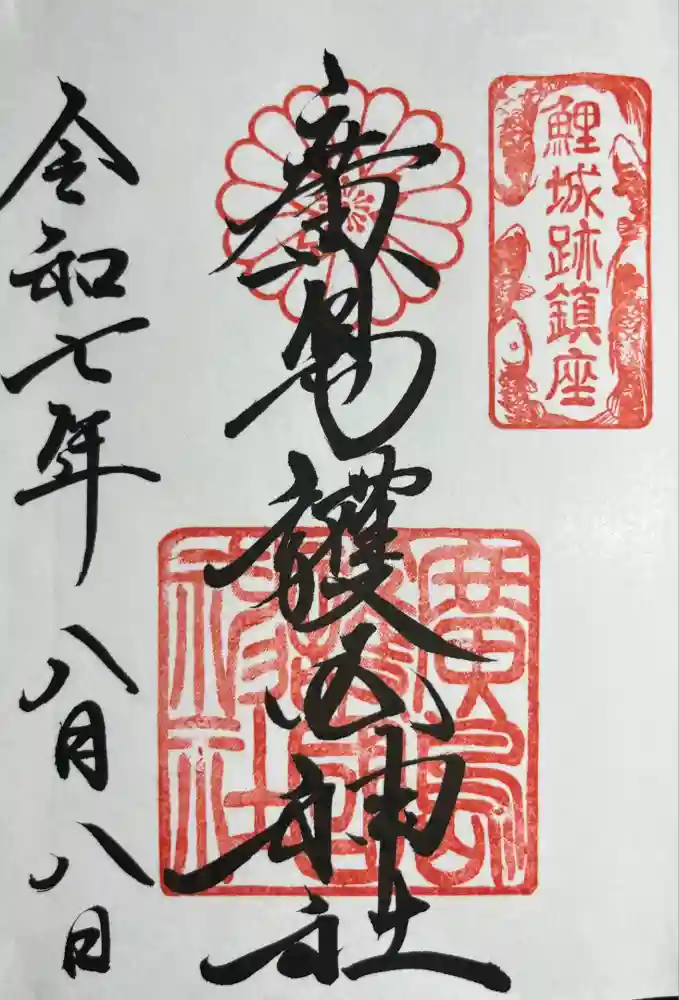 鯉城跡鎮座
廣島護国神社
廣島護國神社
令和七年八月八日